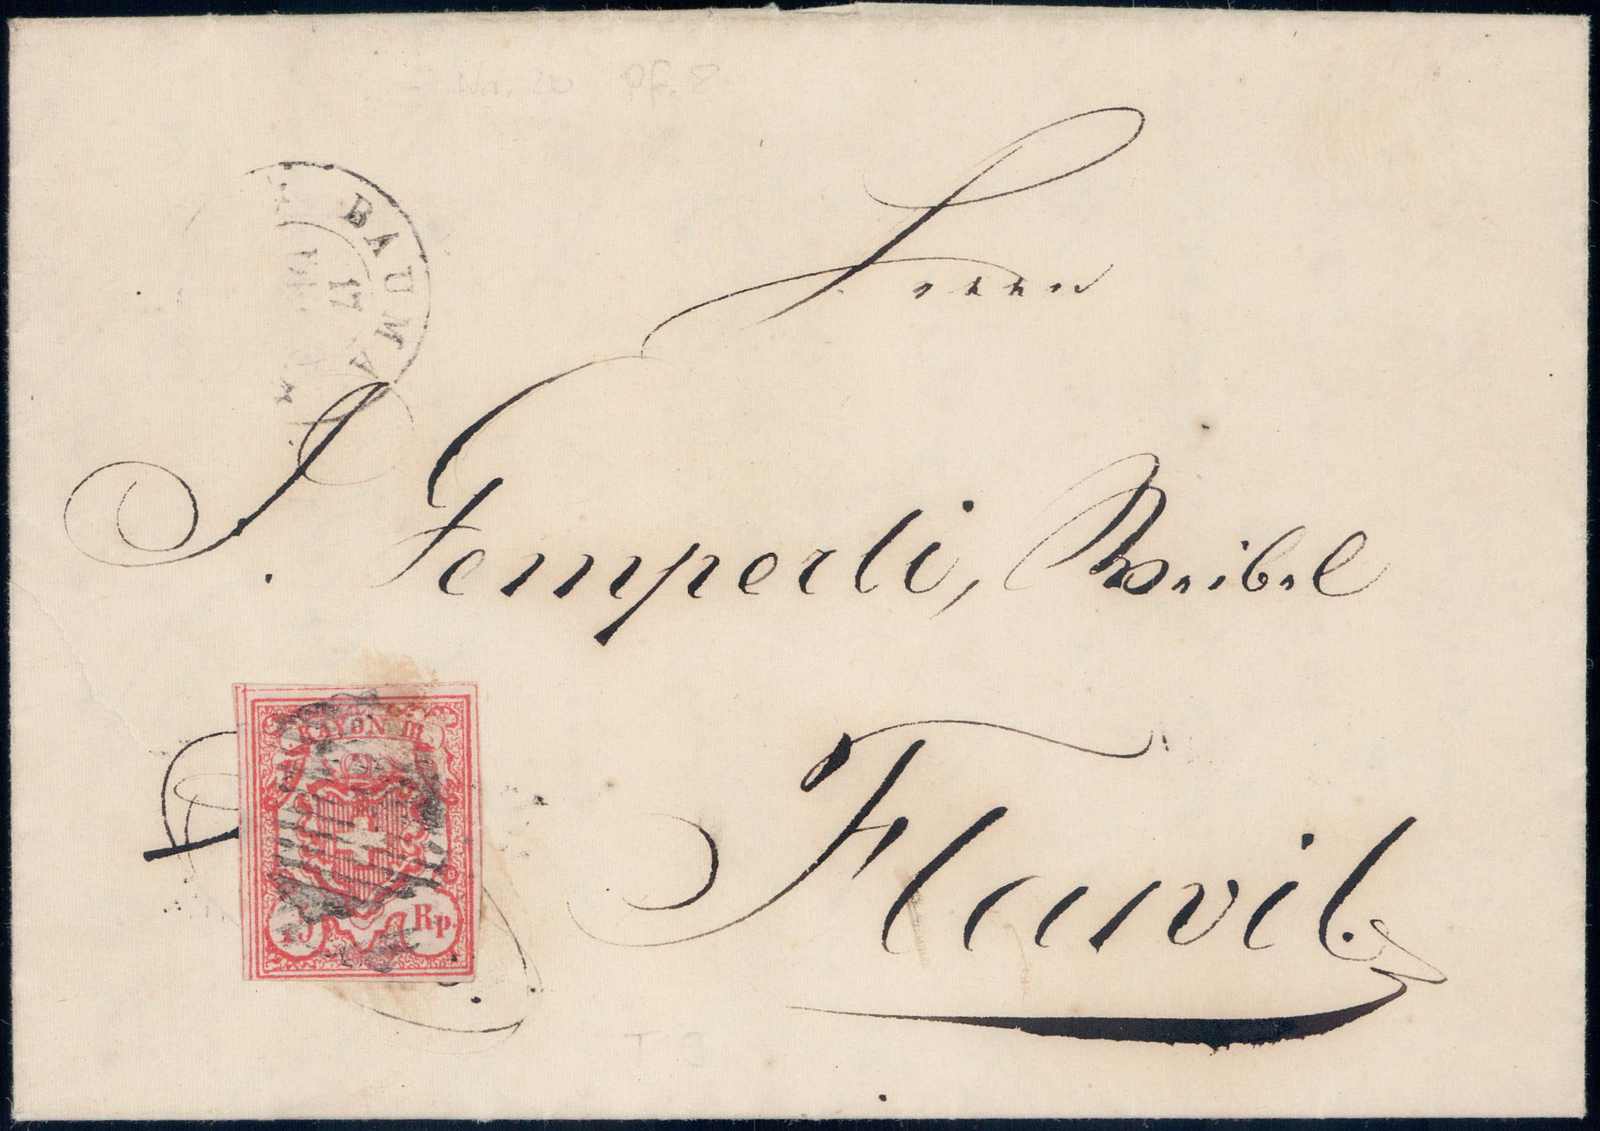 Nr. 20 Pf. 8
BAUMA
17
Herrn
J. Temperli, Weibel
Flawil.
RAYON III
15 Rp.
T 3